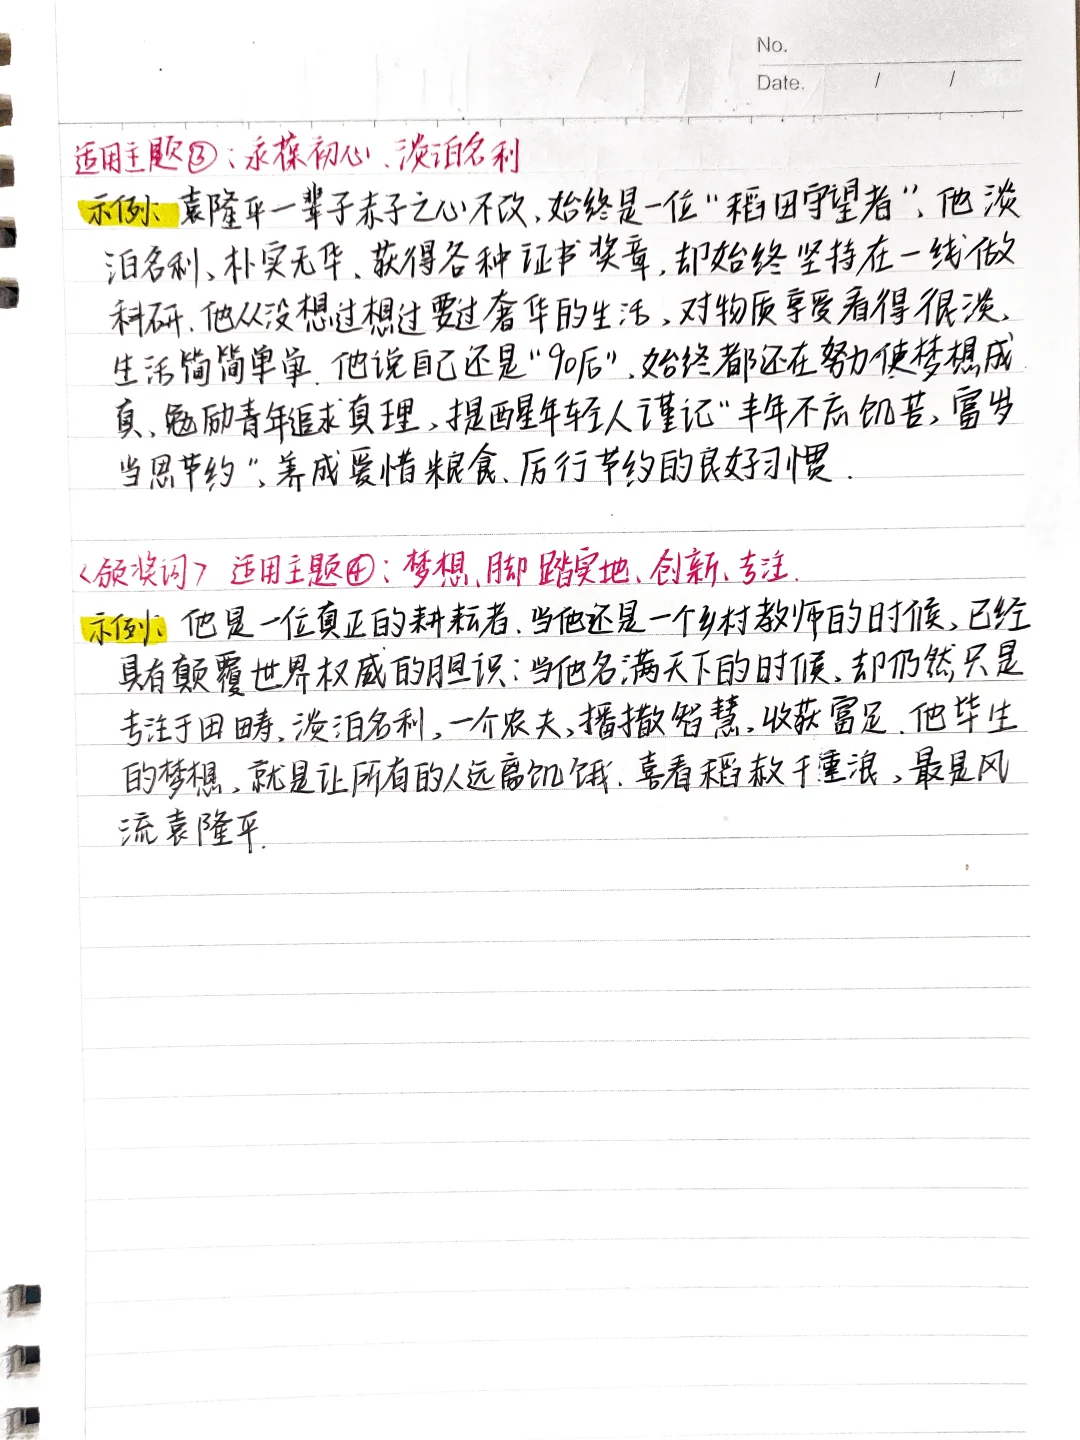 No.
Date. / /
适用主题③：永葆初心、淡泊名利
示例：袁隆平一辈子赤子之心不改，始终是一位“稻田守望者”，他淡
泊名利、朴实无华、获得各种证书奖章，却始终坚持在一线做
科研。他从没想过想过要过奢华的生活，对物质享受看得很淡，
生活简简单单。他说自己还是“90后”，始终都还在努力使梦想成
真、勉励青年追求真理，提醒年轻人谨记“丰年不忘饥苦，富岁
当思节约”，养成爱惜粮食、厉行节约的良好习惯.
<颁奖词> 适用主题④：梦想、脚踏实地、创新、专注.
示例：他是一位真正的耕耘者.当他还是一个乡村教师的时候，已经
具有颠覆世界权威的胆识；当他名满天下的时候，却仍然只是
专注于田畴，淡泊名利，一介农夫，播撒智慧，收获富足.他毕生
的梦想，就是让所有的人远离饥饿.喜看稻菽千重浪，最是风
流袁隆平.